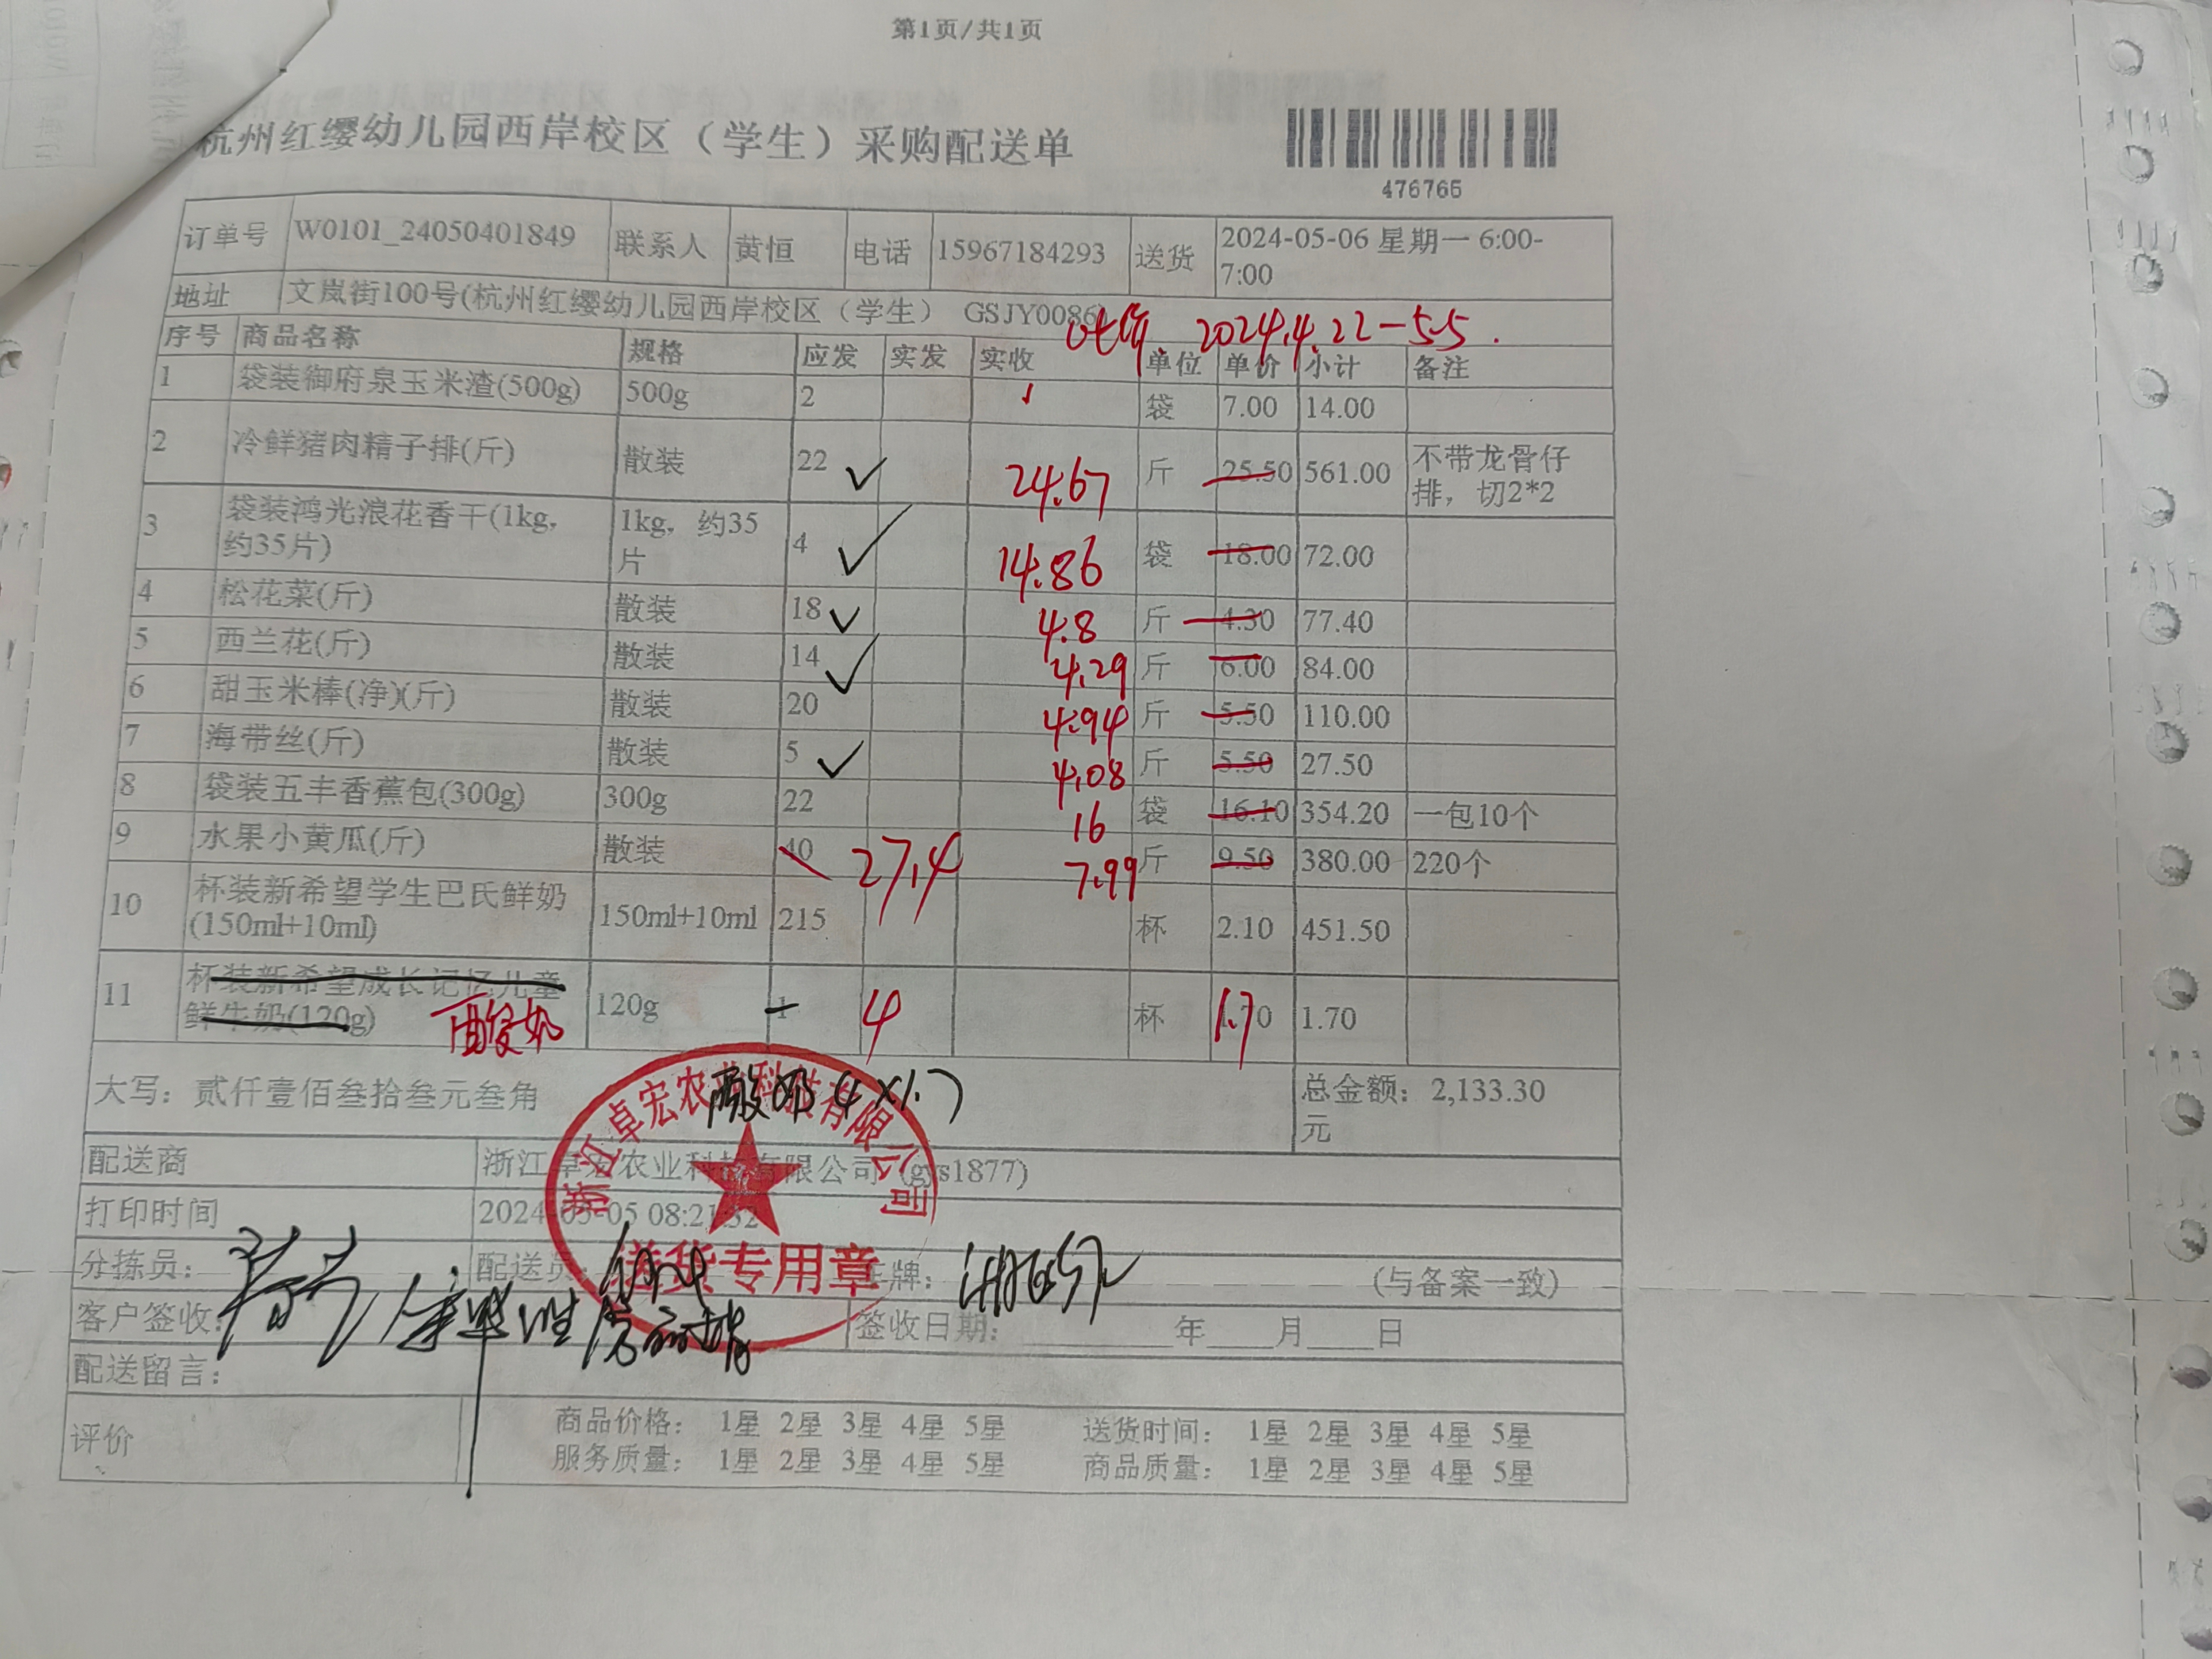 第1页/共1页
杭州红缨幼儿园西岸校区（学生）采购配送单
476765
订单号 W0101_24050401849 联系人 黄恒 电话 15967184293 送货 2024-05-06 星期一 6:00-
7:00
地址 文岚街100号(杭州红缨幼儿园西岸校区（学生） GSJY0086)
2024.4.22-5.5.
序号 商品名称 规格 应发 实发 实收 单位 单价 小计 备注
1 袋装御府泉玉米渣(500g) 500g 2 袋 7.00 14.00
2 冷鲜猪肉精子排(斤) 散装 22 ✓ 24.67 斤 25.50 561.00 不带龙骨仔
排，切2*2
3 袋装鸿光浪花香干(1kg, 1kg，约35 4 ✓ 14.86 袋 18.00 72.00
约35片) 片
4 松花菜(斤) 散装 18 ✓ 4.8 斤 4.30 77.40
5 西兰花(斤) 散装 14 ✓ 4.29 斤 6.00 84.00
6 甜玉米棒(净)(斤) 散装 20 4.94 斤 5.50 110.00
7 海带丝(斤) 散装 5 ✓ 4.08 斤 5.50 27.50
8 袋装五丰香蕉包(300g) 300g 22 16 袋 16.10 354.20 一包10个
9 水果小黄瓜(斤) 散装 40 27.4 7.99 斤 9.50 380.00 220个
10 杯装新希望学生巴氏鲜奶 150ml+10ml 215 杯 2.10 451.50
(150ml+10ml)
11 杯装新希望成长记忆儿童 120g 1 4 杯 1.70 1.7 1.70
鲜牛奶(120g) 酸奶
大写：贰仟壹佰叁拾叁元叁角 酸奶(4×1.7) 总金额：2,133.30
元
配送商 浙江卓宏农业科技有限公司 (gys1877)
打印时间 2024-05-05 08:21:32
浙江卓宏农业科技有限公司
送货专用章
分拣员： 配送员： 车牌： (与备案一致)
客户签收： 签收日期： 年 月 日
配送留言：
评价 商品价格： 1星 2星 3星 4星 5星 送货时间： 1星 2星 3星 4星 5星
服务质量： 1星 2星 3星 4星 5星 商品质量： 1星 2星 3星 4星 5星